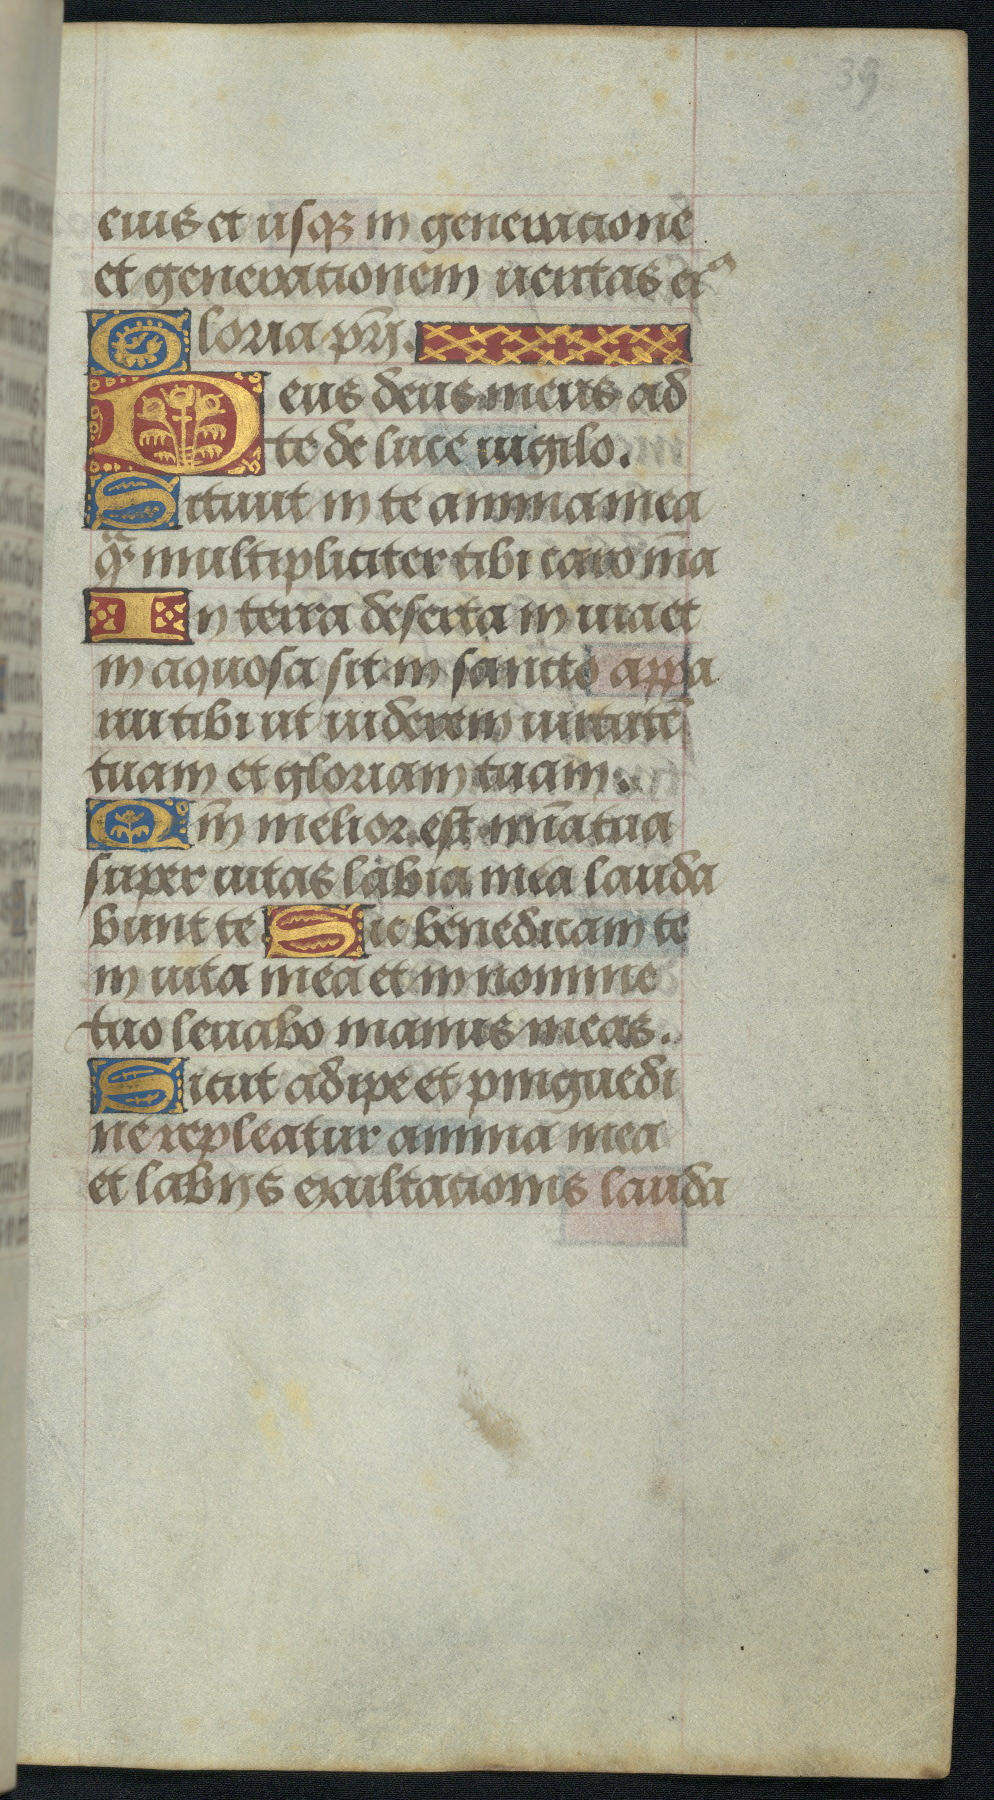 39
eius et usqꝫ in generacionē
et generationem ueritas eiꝰ
Gloria pr̄i.
Deus deus meus ad
te de luce uigilo.
Sitiuit in te anima mea
qͣ multipliciter tibi caro m̄a
In terra deserta in uia et
in aquosa sit in sancto appa
rui tibi ut uiderem uirtutē
tuam et gloriam tuam.
Qm̄ melior est mīa tua
super uitas labia mea lauda
bunt te Sic benedicam te
in uita mea et in nomine
tuo leuabo manus meas.
Sicut adipe et pinguedi
ne repleatur anima mea
et labijs exultacionis lauda